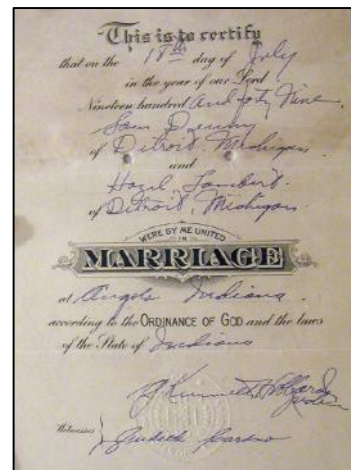 This is to certify
that on the 18th day of July
in the year of our Lord
Nineteen hundred and forty Nine
Sam
of Detroit, Michigan
and
Hazel Lambert
of Detroit, Michigan.
WERE BY ME UNITED
IN
MARRIAGE
at Angola Indiana
according to the ORDINANCE OF GOD and the laws
of the State of Indiana
Kenneth Hubbard
Witnesses
Judith